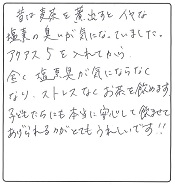 昔は麦茶を煮出すとイヤな
塩素の臭いが気になっていました。
アクアス5を入れてから
全く塩素臭が気にならなく
なり、ストレスなくお茶を飲めます。
子どもたちにも本当に安心して飲ませて
あげられるのがとてもうれしいです!!